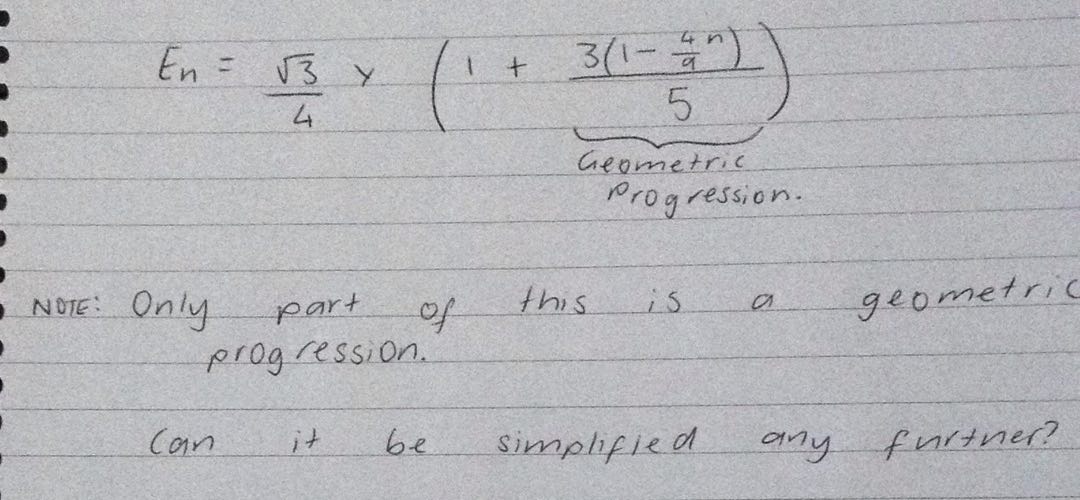 En = √3/4 y (1 + 3(1 - 4/9 n)/5)
Geometric
Progression.
NOTE: Only part of this is a geometric
progression.
Can it be simplified any further?